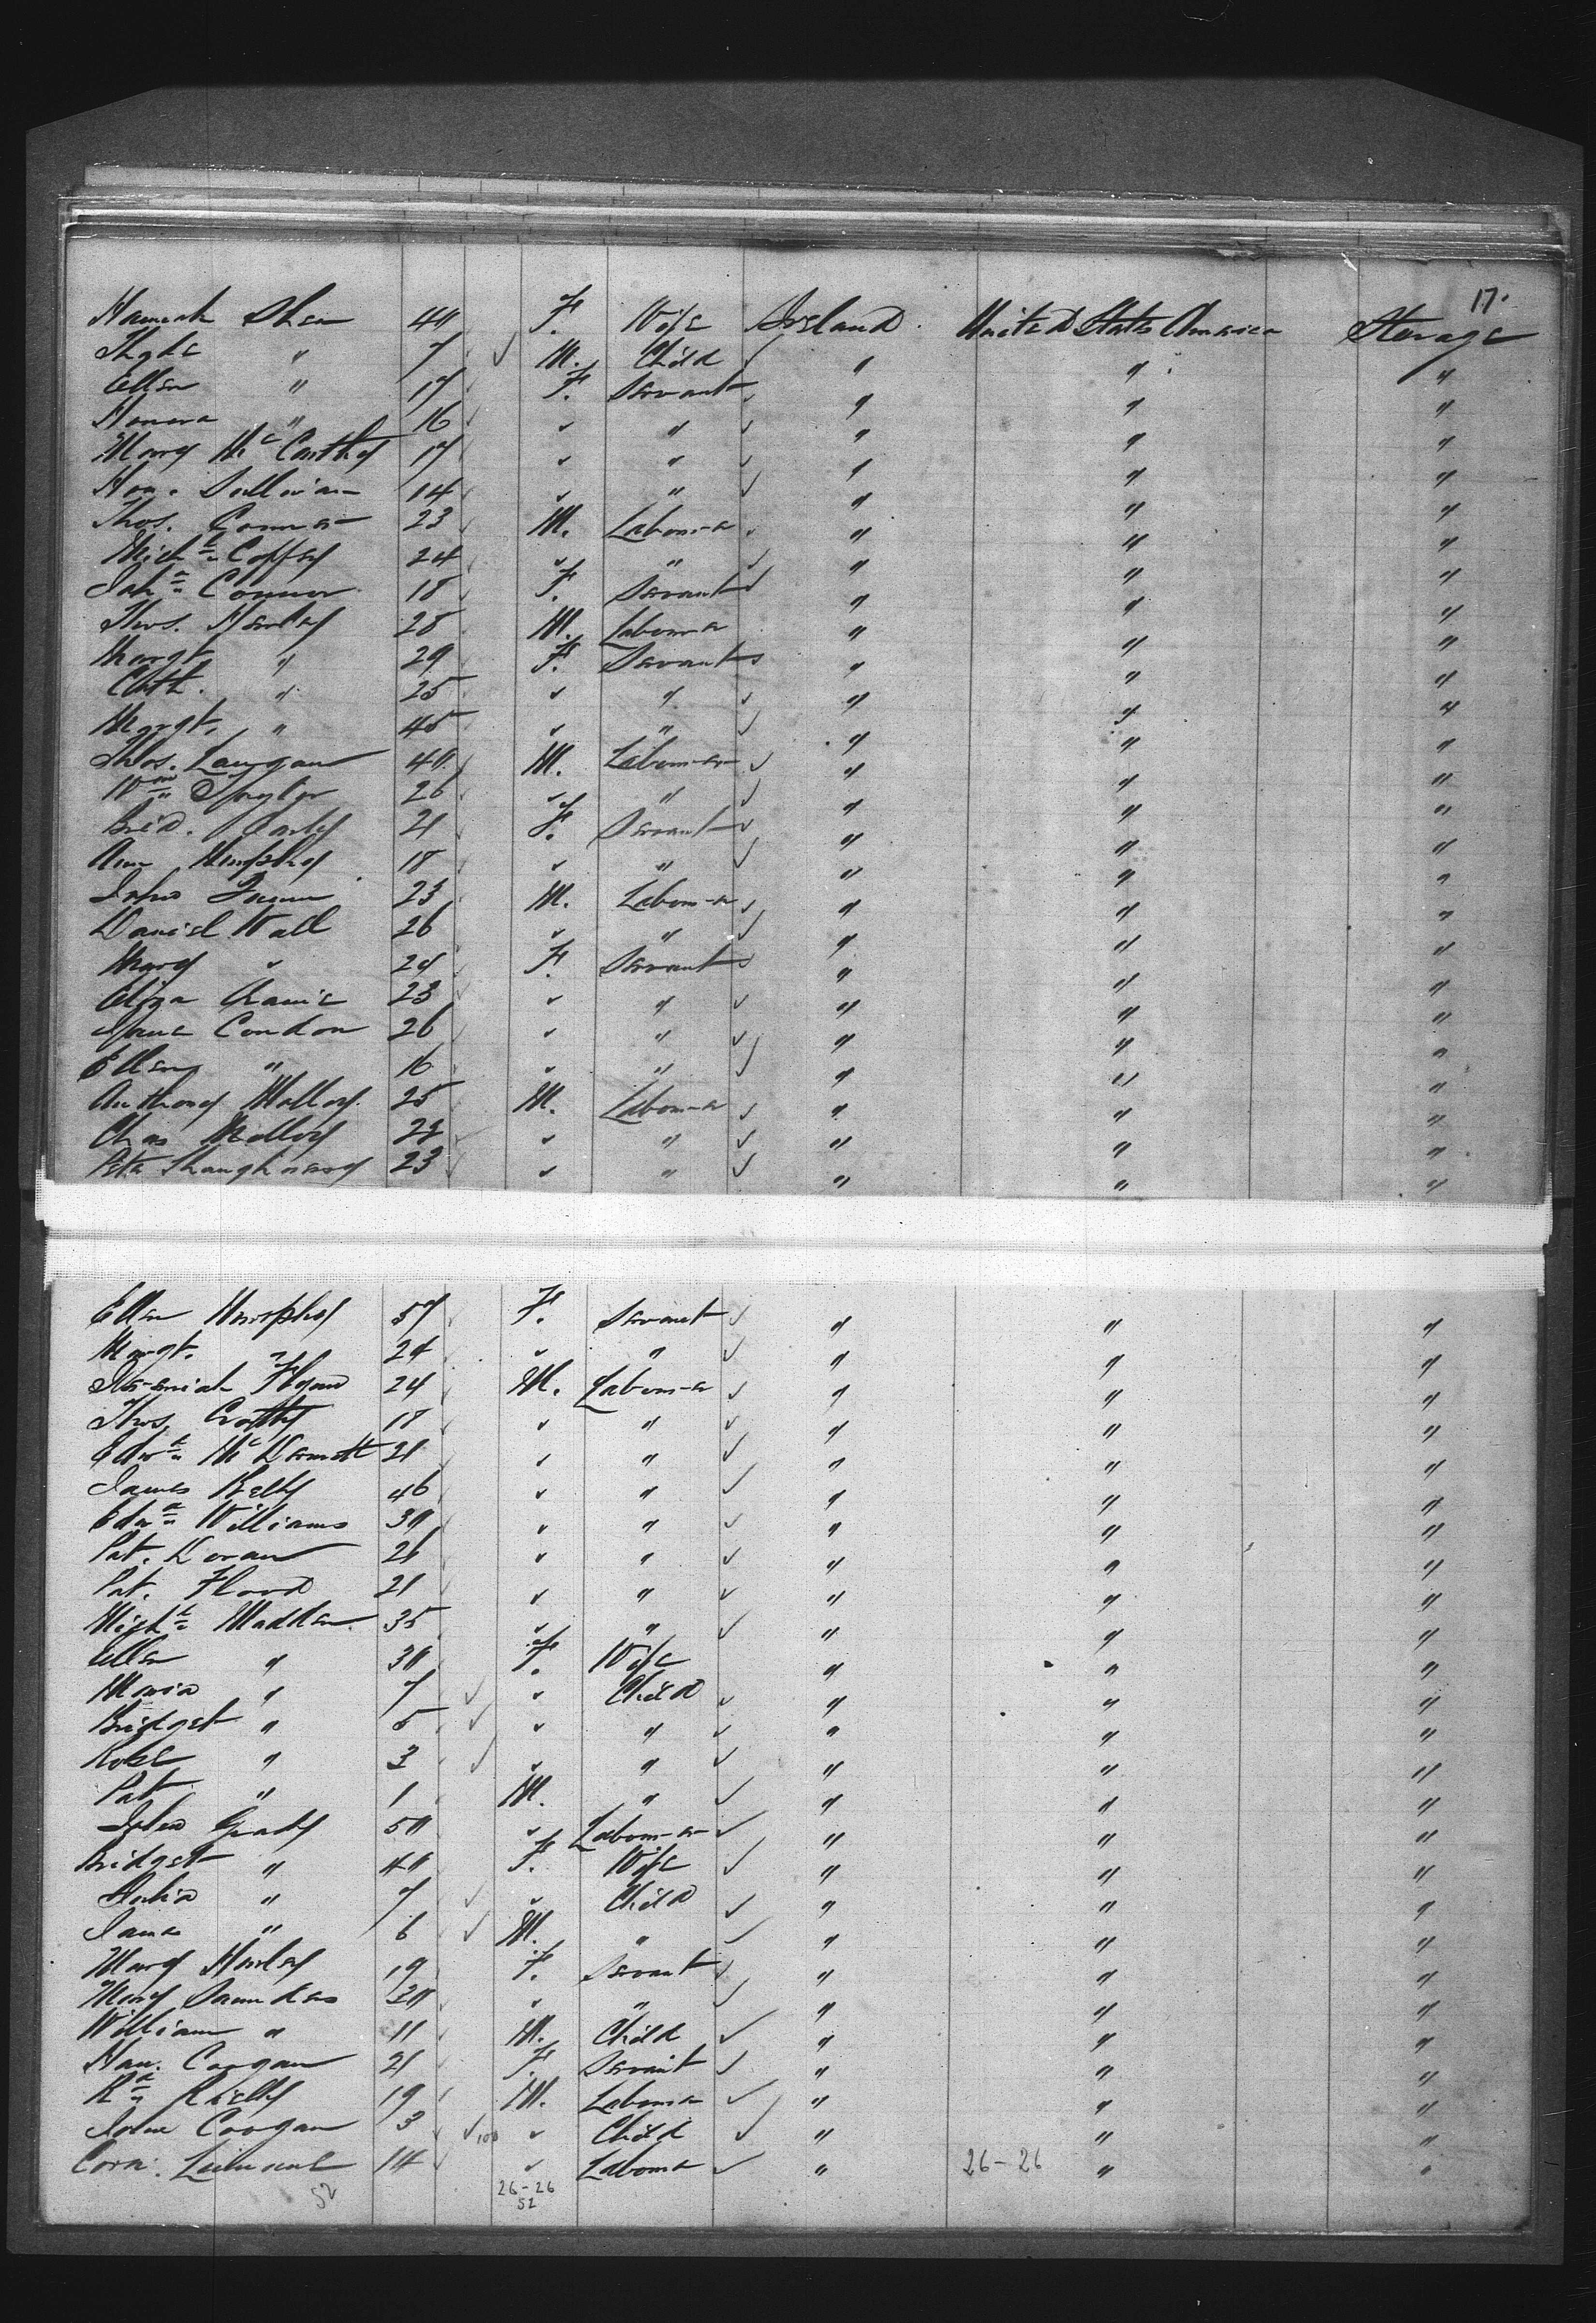 17.
Hannah Shea 40 F. Wife Ireland United States America Steerage
7 M. Child " " "
Ellen " 17 F. Servant " " "
Honora " 16 " " " " "
Mary McCarthy 17 " " " " "
Hon. Sullivan 14 " " " " "
Thos. Connor 23 M. Labourer " " "
Michl. Coffey 24 " " " " "
Joha. Connor 18 F. Servant " " "
Thos. Hanley 28 M. Labourer " " "
Margt. " 29 F. Servant " " "
Cath. " 25 " " " " "
Margt. " 45 " " " " "
Thos. Langan 40 M. Labourer " " "
Wm. 26 " " " " "
Brid. 21 F. Servant " " "
Ann 18 " " " " "
John 23 M. Labourer " " "
Daniel Wall 26 " " " " "
Mary " 24 F. Servant " " "
Eliza 23 " " " " "
Jane Condon 26 " " " " "
Ellen " 16 " " " " "
Anthony Molloy 25 M. Labourer " " "
Chas Molloy 22 " " " " "
Peter Shaughnessy 23 " " " " "
Ellen Murphy 57 F. Servant " " "
Margt. " 24 " " " " "
Jeremiah Flynn 24 M. Labourer " " "
Thos. Crotty 18 " " " " "
Edwd. McDermott 21 " " " " "
James Kelly 46 " " " " "
Edwd. Williams 30 " " " " "
Pat. Doran 26 " " " " "
Pat. Flood 21 " " " " "
Michl. Madden 35 " " " " "
Ellen " 30 F. Wife " " "
Maria " 7 " Child " " "
Bridget " 5 " " " " "
Rose " 3 " " " " "
Pat " 1 M. " " " "
John Grady 50 " Labourer " " "
Bridget " 40 F. Wife " " "
Julia " 7 " Child " " "
James " 6 M. " " " "
Mary Hurley 19 F. Servant " " "
Mary Saunders 30 " " " " "
William " 11 M. Child " " "
Han. Coogan 21 F. Servant " " "
Rd. Rielly 19 M. Labourer " " "
John Coogan 3 100 " Child " " "
Corn. 14 " Labourer " 26-26 " "
52 26-26
52